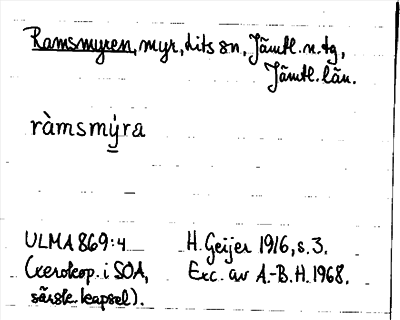 Ramsmyren, myr, Lits sn, Jämtl. n. tg,
Jämtl. län.
ràmsmý̠ra
ULMA 869:4 H. Geijer 1916, s. 3.
(xerokop. i SOA, Exc. av A.-B. H. 1968.
särsk. kapsel).